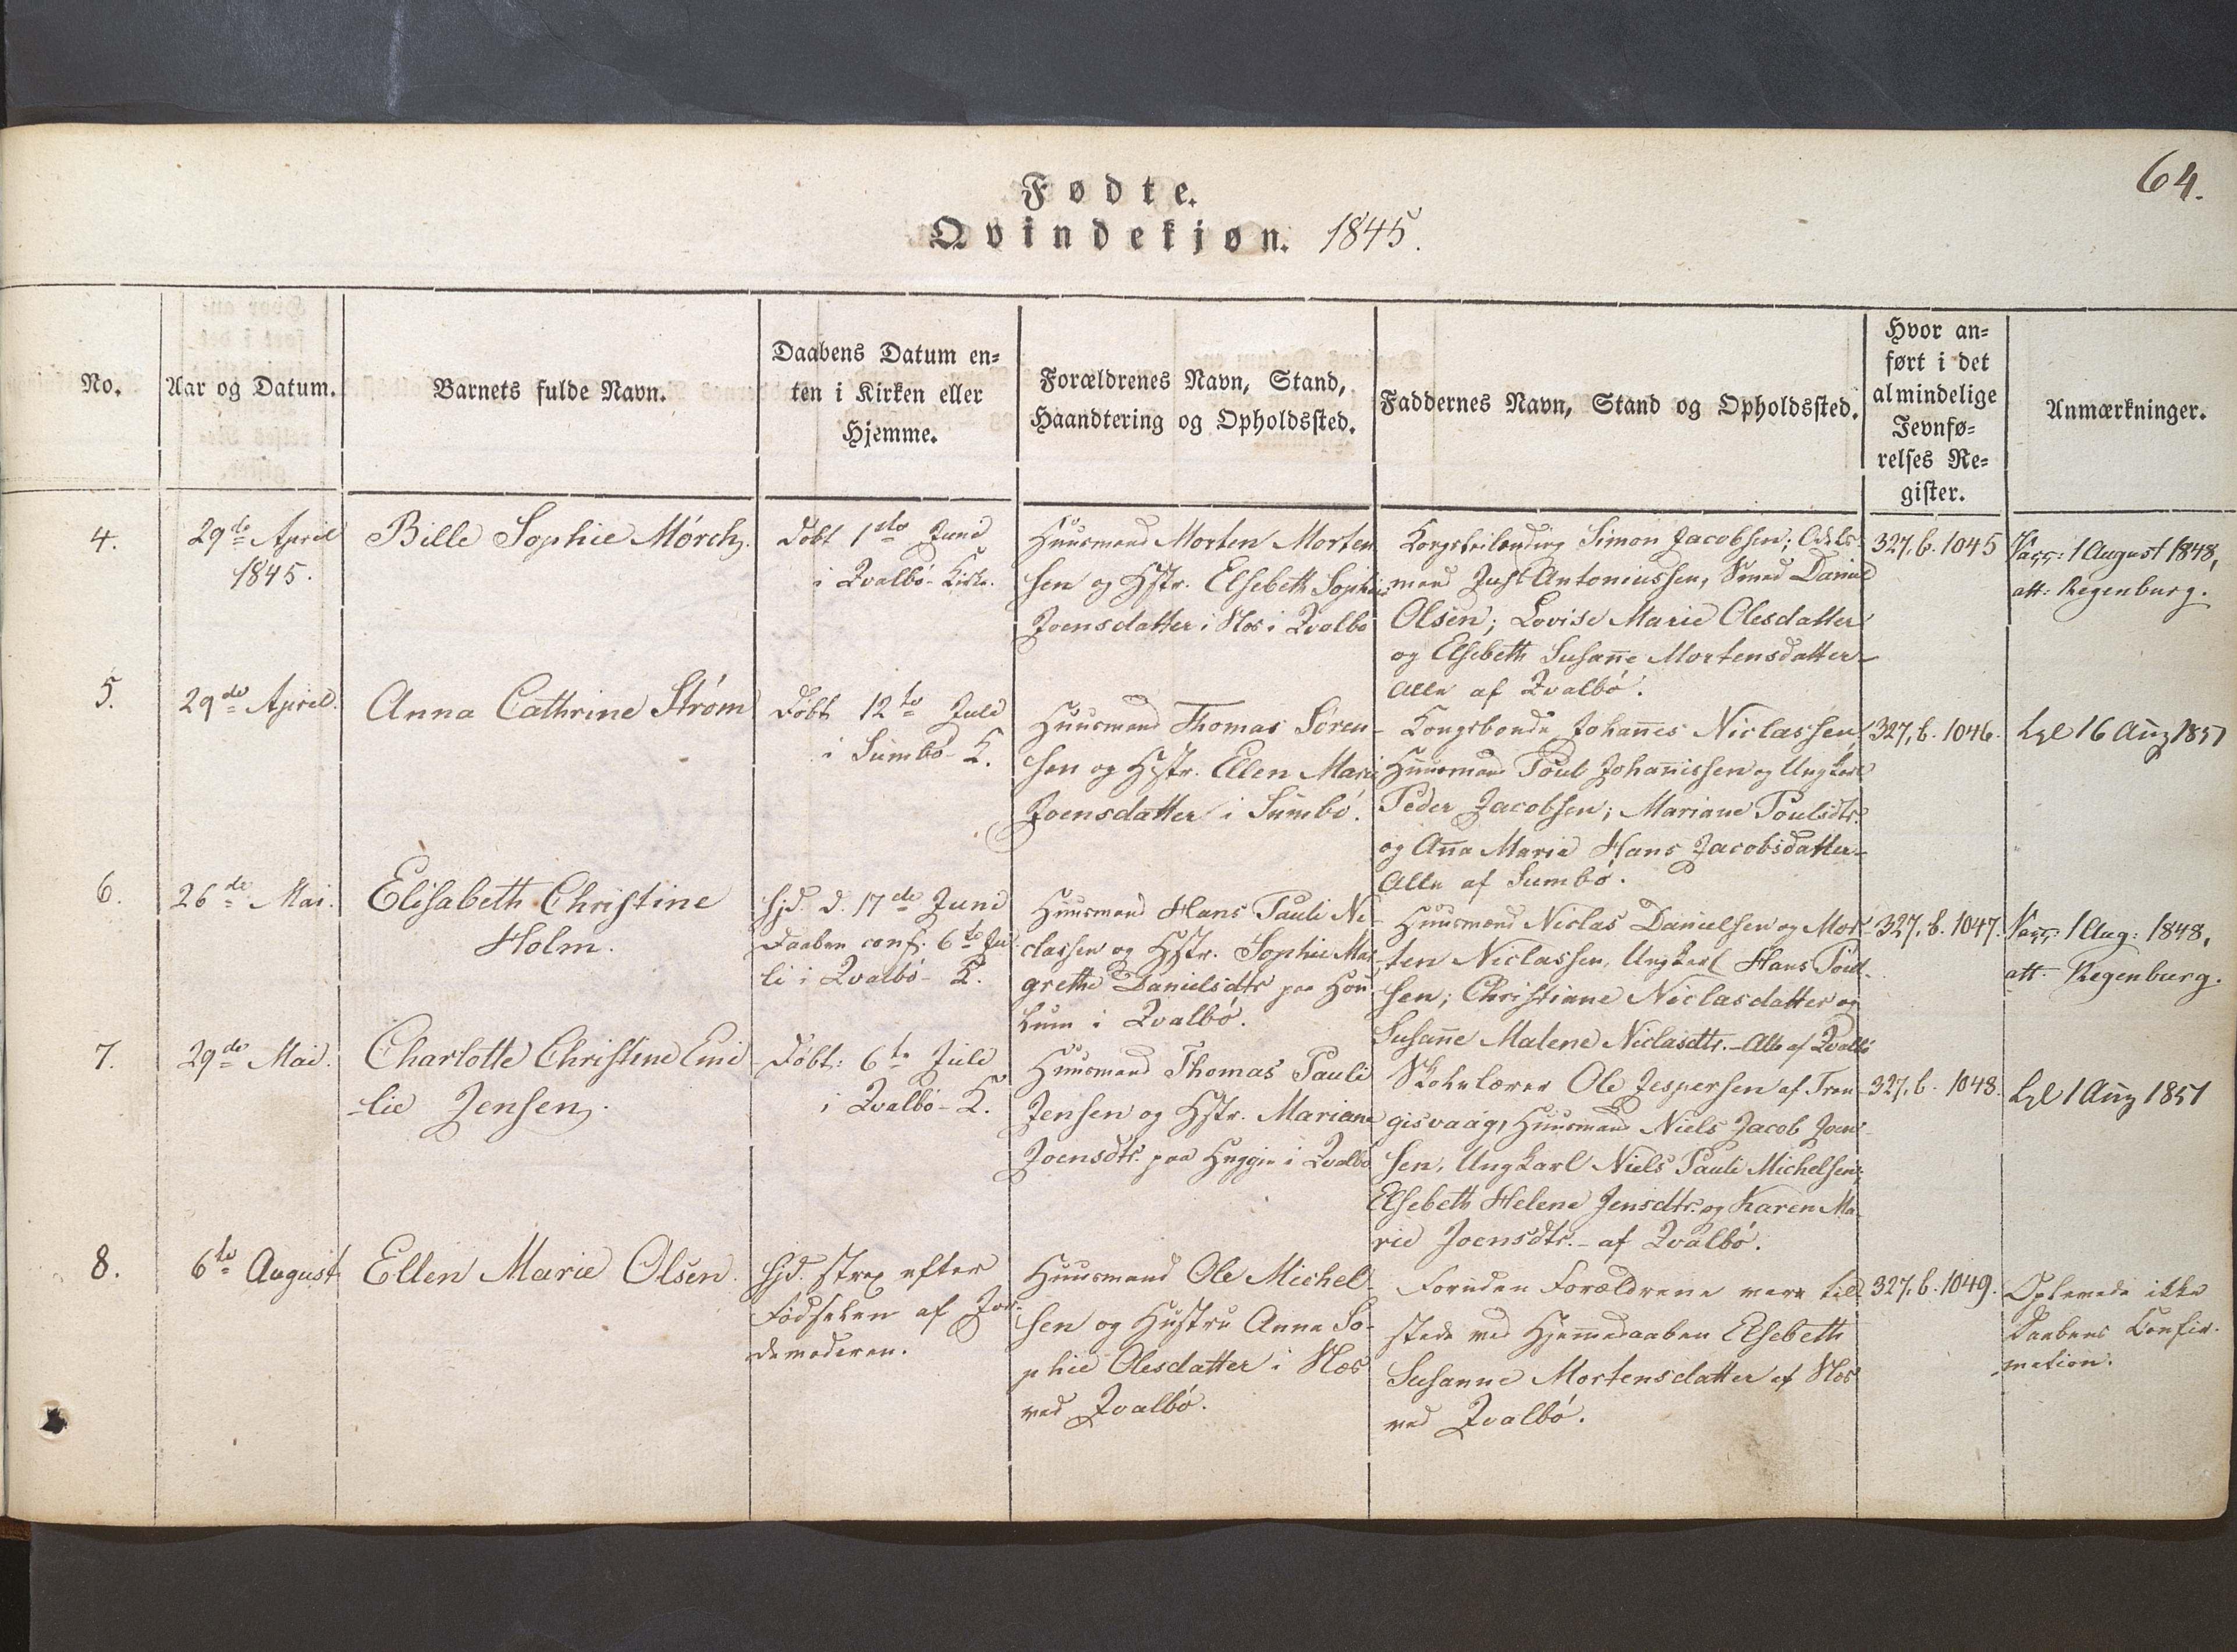 64.
Fødte.
Qvindekjøn. 1845.
No.
Aar og Datum.
Barnets fulde Navn.
Daabens Datum en-
ten i Kirken eller
Hjemme.
Forældrenes Navn, Stand,
Haandtering og Opholdssted.
Faddernes Navn, Stand og Opholdssted.
Hvor an-
ført i det
almindelige
Jevnfø-
relses Re-
gister.
Anmærkninger.
4.
29de April
1845.
Bille Sophie Mörch.
Döbt 1ste Juni
i Qvalbö-Kirke.
Huusmand Morten Morten
sen og Hstr. Elsebeth Sophie
Joensdatter i Næs i Qvalbö
Simon Jacobsen; Odels-
mand Just Antoniussen, Smed Daniel
Olsen; Lovise Marie Olesdatter
og Elsebeth Susanne Mortensdatter-
Alle af Qvalbö.
327, b. 1045
Vacc: 1 August 1848,
att: Regenburg.
5.
29de April.
Anna Cathrine Ström
Döbt 12te Juli
i Sumbö-K.
Huusmand Thomas Sören-
sen og Hstr. Ellen Marie
Joensdatter i Sumbö.
Kongsbonde Johannes Niclassen,
Huusmand Poul Johannissen og Ungkarl
Peder Jacobsen; Mariane Poulsdtr.
og Anna Marie Hans Jacobsdatter-
Alle af Sumbö.
327, b. 1046.
16 Aug 1851
6.
26de Mai.
Elisabeth Christine
Holm.
Hjd. d. 17de Juni
Daaben conf. 6te Ju-
li i Qvalbö-K.
Huusmand Hans Pauli Ni-
classen og Hstr. Sophie Mar-
grethe Danielsdtr paa
i Qvalbö.
Huusmænd Niclas Danielsen og Mor-
ten Niclassen, Ungkarl Hans Poul-
sen; Christiane Niclasdatter og
Susanne Malene Niclasdtr.-Alle af Qvalbö
327, b. 1047.
Vacc: 1 Aug: 1848,
att: Regenburg.
7.
29de Mai.
Charlotte Christine Emi
-lie Jensen.
Döbt: 6te Juli
i Qvalbö-K.
Huusmand Thomas Pauli
Jensen og Hstr. Mariane
Joensdtr. paa i Qvalbö
Skolelærer Ole Jespersen af Tran-
gisvaag, Huusmand Niels Jacob Joen-
sen, Ungkarl Niels Pauli Michelsen;
Elsebeth Helene Jensdtr. og Karen Ma-
rie Joensdtr.- af Qvalbö.
327, b. 1048.
1 Aug 1851
8.
6te August
Ellen Marie Olsen.
Hjd. strax efter
Födselen af Jor-
demoderen.
Huusmand Ole Michel-
sen og Hustru Anna So-
phie Olesdatter i Næs
ved Qvalbö.
Foruden Forældrene vare til-
stede ved Hjemmedaaben Elsebeth
Susanne Mortensdatter af Næs
ved Qvalbö.
327, b. 1049.
Oplevede ikke
Daabens Confir-
mation.